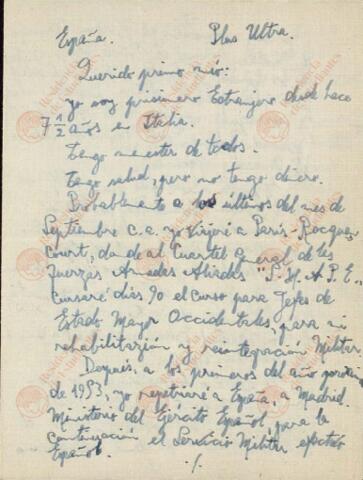 España. Plus Ultra.
Querido primo mió:
yo soy prisionero Extranjero desde hace
7 1/2 años en Italia.
Tengo menester de todos.
Tengo salud, pero no tengo dinero.
Probablemente a los últimos del mes de
Septiembre c.a. yo viajeré a París-Rocquen
court, donde al Cuartel General de les
Fuerzas Armadas Aliadas "S.H.A.P.E."
Cursaré días 90 el Curso para Jefes de
Estado Mayor Occidentales, para mi
rehabilitazión y reintegración Militar.
Después, a los primeros del año
de 1953, yo repatriaré a España, a Madrid.
Ministerio del Ejército Español, para la
continuación el Servicio Militar efectivo
Español.
./.